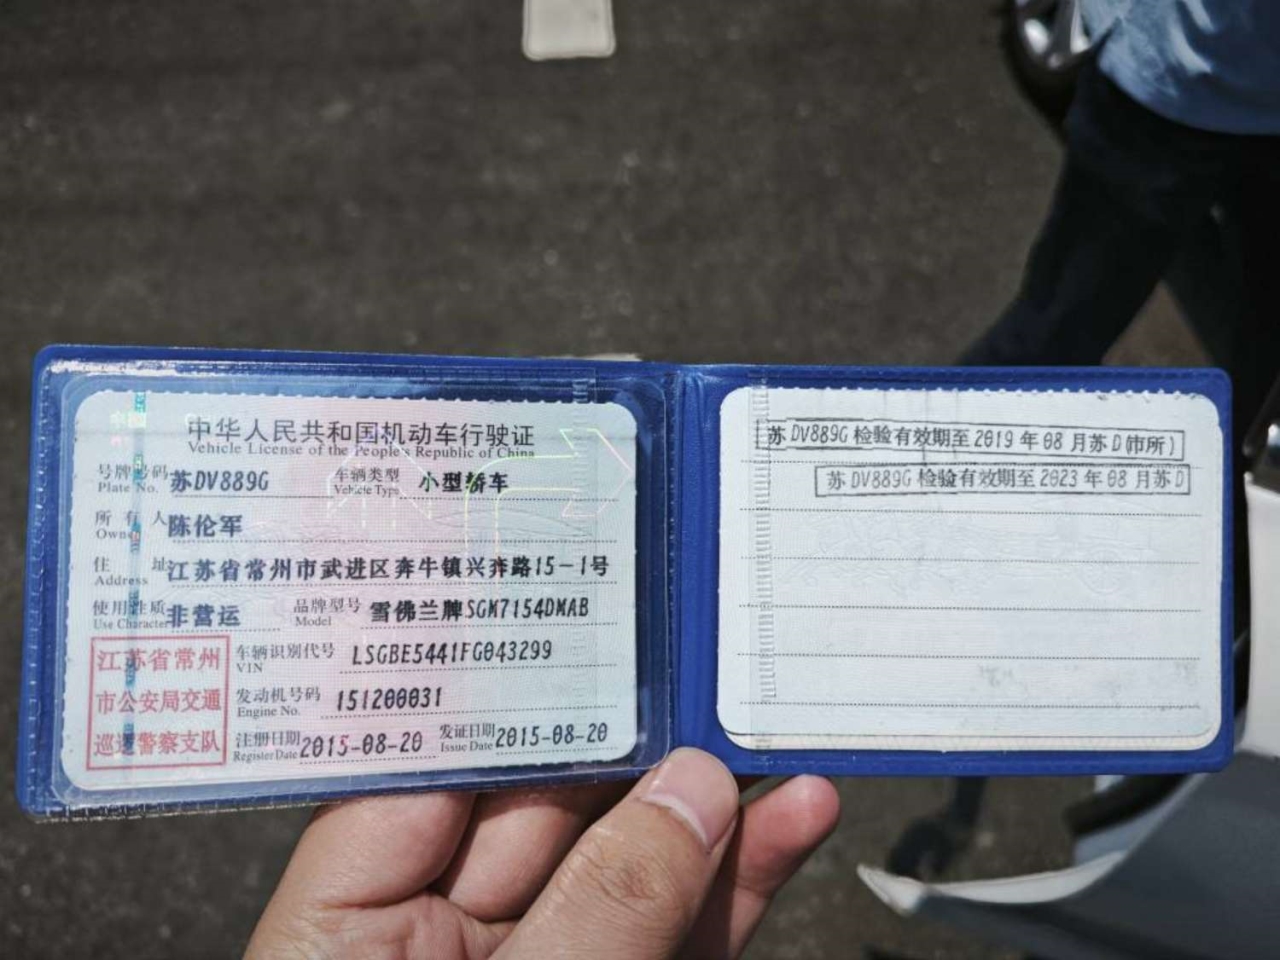 中华人民共和国机动车行驶证
Vehicle License of the People's Republic of China
号牌号码 苏DV889G 车辆类型 小型轿车
Plate No. Vehicle Type
所有人 陈伦军
Owner
住址 江苏省常州市武进区奔牛镇兴奔路15-1号
Address
使用性质 非营运 品牌型号 雪佛兰牌SGM7154DMAB
Use Character Model
江苏省常州
市公安局交通
巡逻警察支队
车辆识别代号 LSGBE5441FG043299
VIN
发动机号码 151200031
Engine No.
注册日期 2015-08-20 发证日期 2015-08-20
Register Date Issue Date
苏DV889G检验有效期至2019年08月苏D(市所)
苏DV889G检验有效期至2023年08月苏D